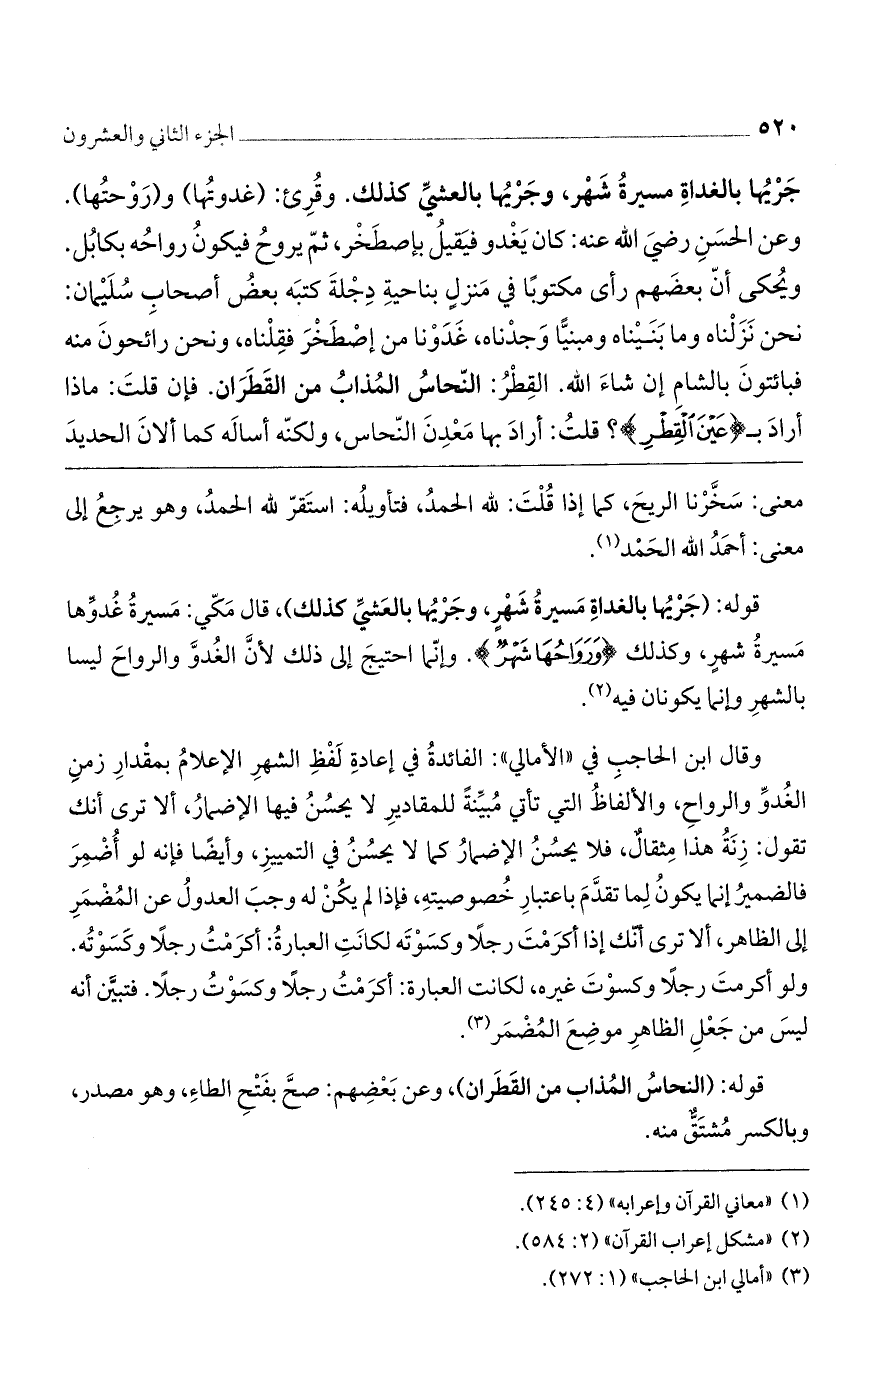 ٥٢٠ ــــــــــــ الجزء الثاني والعشرون
جَرْيُها بالغداةِ مسيرةُ شَهْر، وجَرْيُها بالعشيِّ كذلك. وقُرِئ: (غدوتُها) و(رَوْحتُها).
وعن الحسَنِ رضيَ الله عنه: كان يَغْدو فيَقيلُ بإصطَخْر، ثمّ يروحُ فيكونُ رواحُه بكابُل.
ويُحكى أنّ بعضَهم رأى مكتوبًا في مَنزلٍ بناحيةِ دِجْلةَ كتبَه بعضُ أصحابِ سُلَيْمان:
نحن نَزَلْناه وما بَنَـيْناه ومبنيًّا وَجدْناه، غَدَوْنا من إصْطَخْرَ فقِلْناه، ونحن رائحونَ منه
فبائتونَ بالشامِ إن شاءَ الله. القِطْرُ: النّحاسُ المُذابُ من القَطَران. فإن قلتَ: ماذا
أرادَ بـ﴿عَيْنَ ٱلْقِطْرِ﴾؟ قلتُ: أرادَ بها مَعْدِنَ النّحاس، ولكنّه أسالَه كما ألانَ الحديدَ
معنى: سَخَّرْنا الريحَ، كما إذا قُلْتَ: لله الحمدُ، فتأويلُه: استَقرّ لله الحمدُ، وهو يرجِعُ إلى
معنى: أحمَدُ الله الحَمْد(١).
قوله: (جَرْيُها بالغداةِ مَسيرةُ شَهْرٍ، وجَرْيُها بالعَشيِّ كذلك)، قال مَكّي: مَسيرةُ غُدوِّها
مَسيرةُ شهرٍ، وكذلك ﴿وَرَوَاحُهَا شَهْرٌ﴾. وإنّما احتيجَ إلى ذلك لأنَّ الغُدوَّ والرواحَ ليسا
بالشهرِ وإنما يكونان فيه(٢).
وقال ابن الحاجبِ في «الأمالي»: الفائدةُ في إعادةِ لَفْظِ الشهرِ الإعلامُ بمقْدارِ زمنِ
الغُدوِّ والرواحِ، والألفاظُ التي تأتي مُبيِّنةً للمقاديرِ لا يحسُنُ فيها الإضمارُ، ألا ترى أنك
تقول: زِنَةُ هذا مِثقالٌ، فلا يحسُنُ الإضمارُ كما لا يحسُنُ في التمييزِ، وأيضًا فإنه لو أُضْمِرَ
فالضميرُ إنما يكونُ لِما تقدَّمَ باعتبارِ خُصوصيتهِ، فإذا لم يكُنْ له وجبَ العدولُ عن المُضْمَرِ
إلى الظاهر، ألا ترى أنّك إذا أكرَمْتَ رجلًا وكسَوْتَه لكانَتِ العبارةُ: أكرَمْتُ رجلًا وكَسَوْتُه.
ولو أكرمتَ رجلًا وكسوْتَ غيره، لكانت العبارة: أكرَمْتُ رجلًا وكسَوْتُ رجلًا. فتبيَّن أنه
ليسَ من جَعْلِ الظاهرِ موضِعَ المُضْمَر(٣).
قوله: (النحاسُ المُذاب من القَطَران)، وعن بَعْضِهم: صحَّ بفَتْحِ الطاءِ، وهو مصدر،
وبالكسر مُشتَقٌّ منه.
(١) «معاني القرآن وإعرابه» (٤: ٢٤٥).
(٢) «مشكل إعراب القرآن» (٢: ٥٨٤).
(٣) «أمالي ابن الحاجب» (١: ٢٧٢).